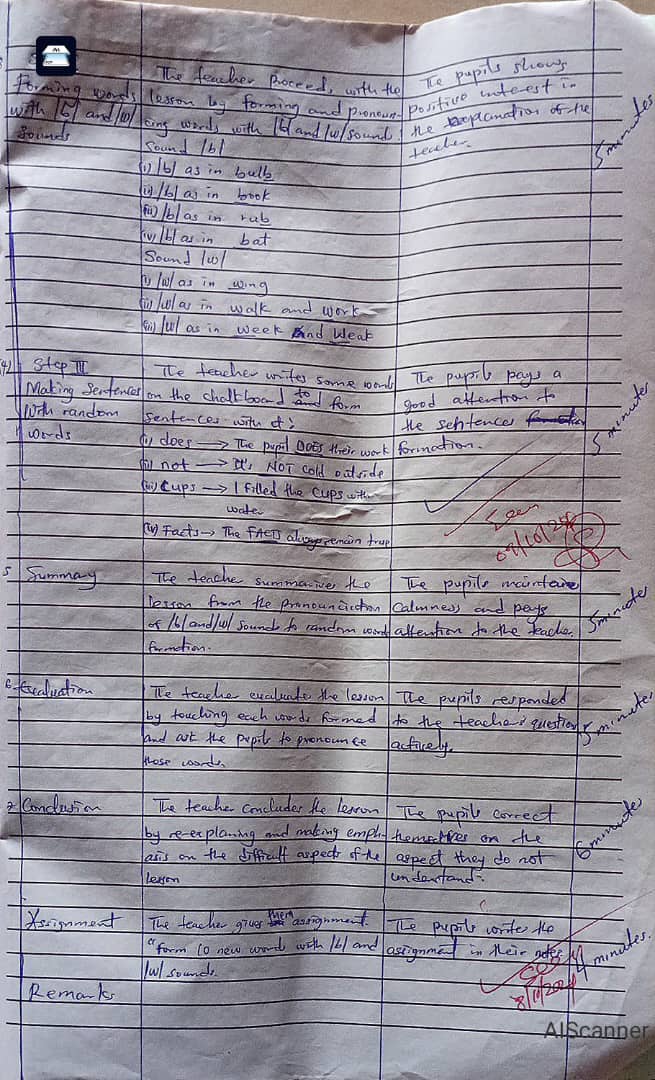 Forming words
with /b/ and /w/
sounds
The teacher Proceeds with the
lesson by forming and pronoun-
cing words with /b/ and /w/ sound
Sound /b/
(i) /b/ as in bulb
(ii) /b/ as in book
(iii) /b/ as in rub
(iv) /b/ as in bat
Sound /w/
(i) /w/ as in wing
(ii) /w/ as in walk and work
(iii) /w/ as in week and weak
The pupils shows
positive interest in
the explanation of the
teacher.
5 minutes
(4) Step III
Making Sentences
With random
words
The teacher writes some words
on the chalkboard to form
sentences with it:
(i) does → The pupil DOES their work
(ii) not → It's NOT cold outside
(iii) Cups → I filled the CUPS with
water
(iv) Facts → The FACTS always remain true
The pupils pays a
good attention to
the sentences
formation.
5 minutes
Seen
5 Summary
The teacher summarives the
lesson from the pronounciation
of /b/ and /w/ sounds to random word
formation.
The pupils maintains
Calmness and pays
attention to the teacher
5 minutes
6. Evaluation
The teacher evaluate the lesson
by touching each words formed
and ask the pupils to pronounce
those words.
The pupils responded
to the teacher's question
actively.
5 minutes
7 Conclusion
The teacher concludes the lesson
by re-explaning and making emph-
asis on the difficult aspects of the
lesson
The pupils correct
themselves on the
aspect they do not
understand.
6 minutes
Assignment
The teacher gives them assignment.
"form 10 new words with /b/ and
/w/ sounds.
The pupils write the
assignment in their notes
4 minutes.
8/10/2024
Remarks
AIScanner